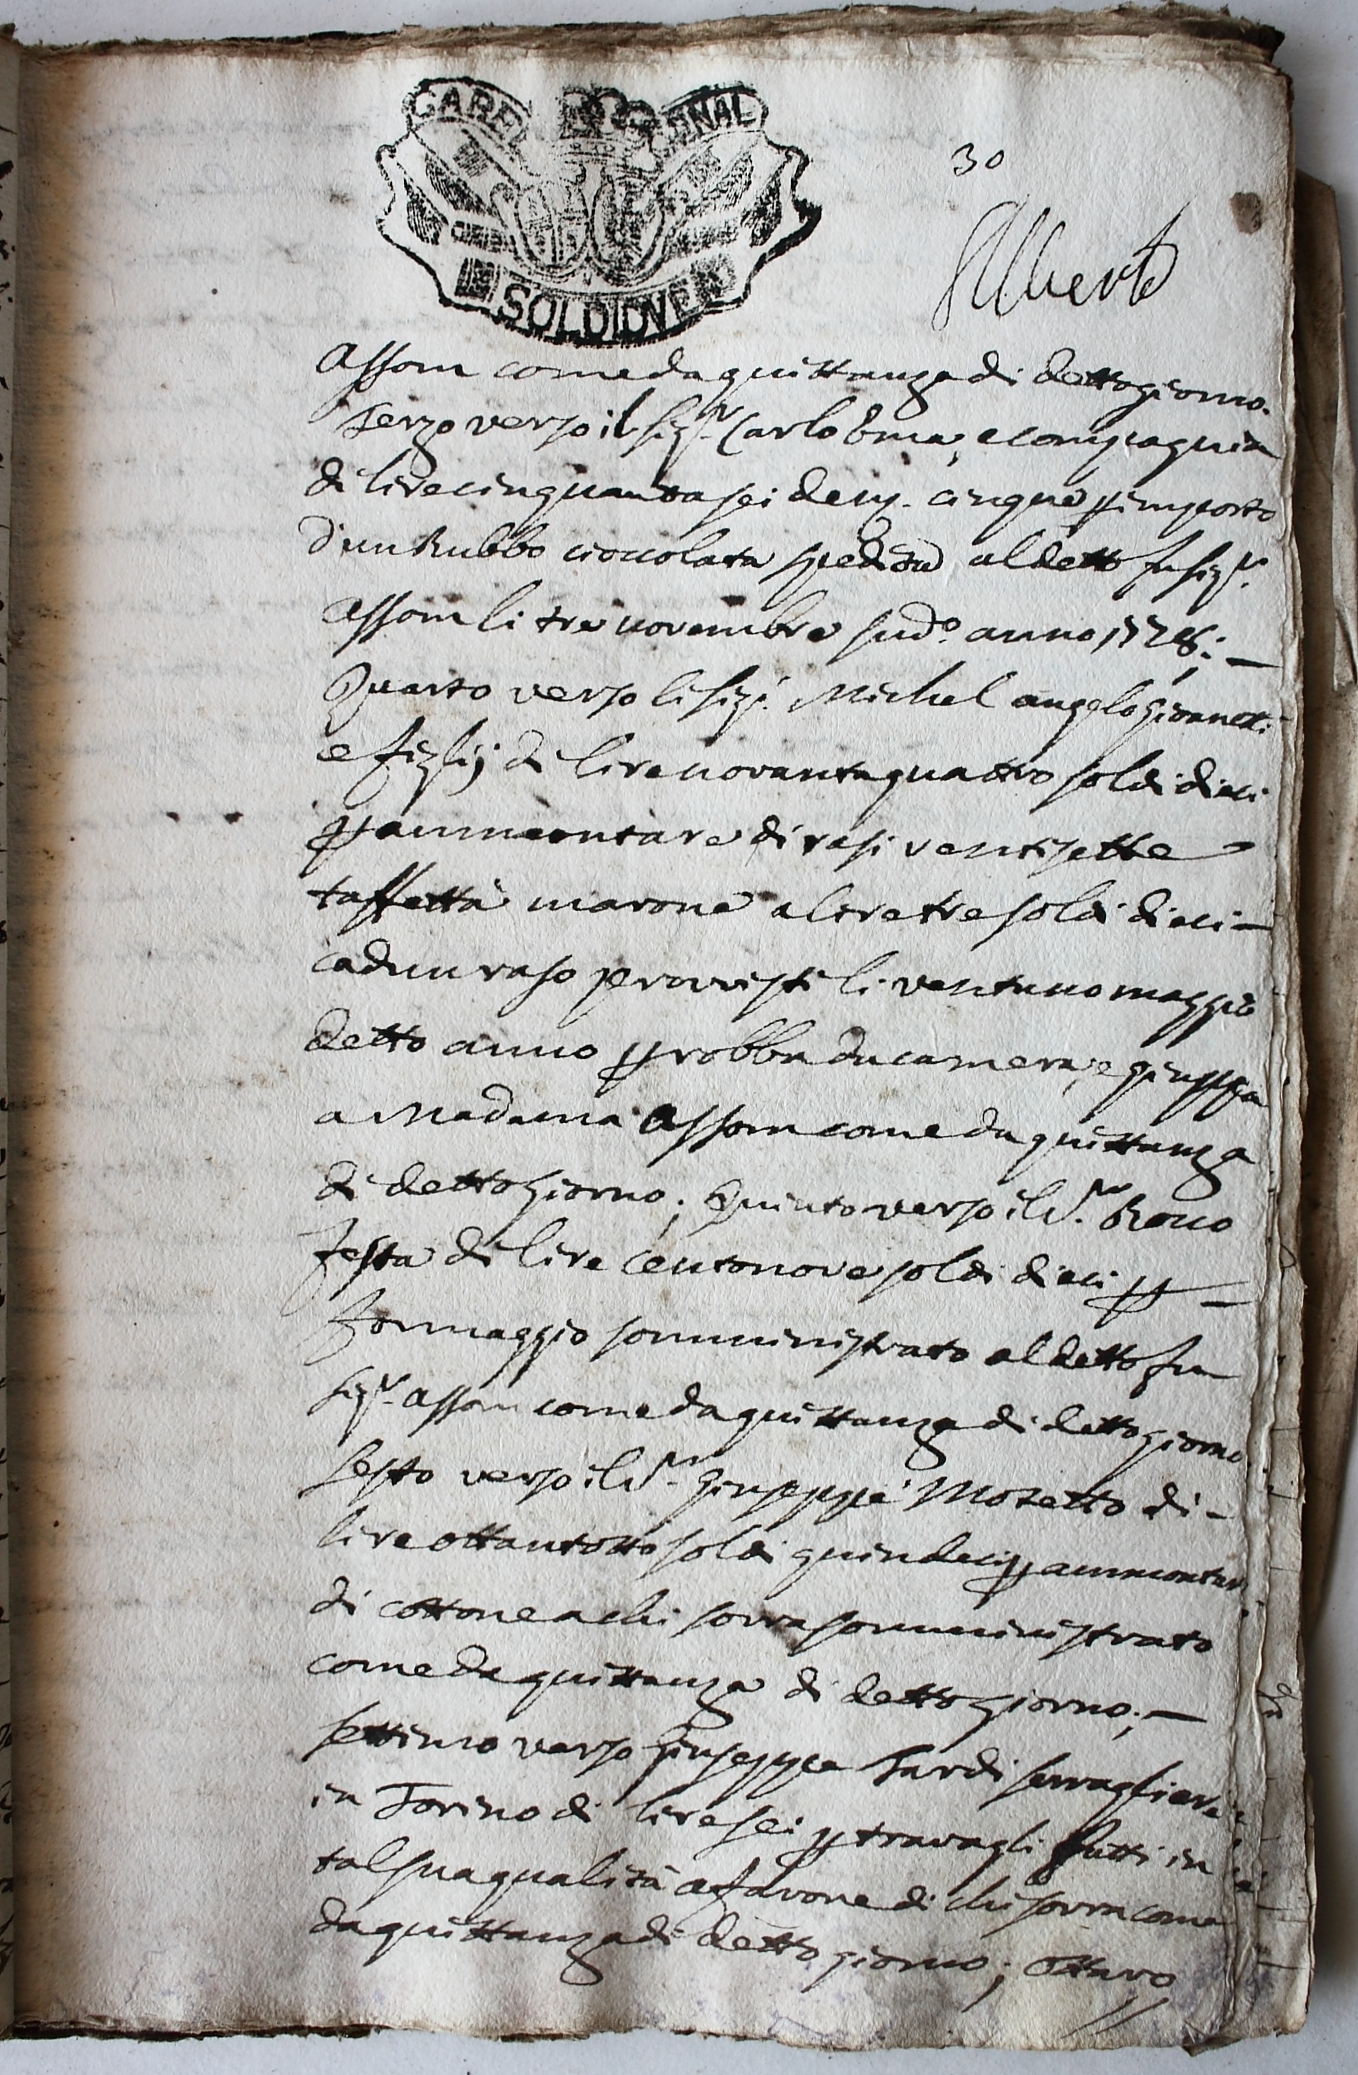 GABEL
ONAL
SOLDI DVE
30
Alberto
Assom come da quittanza di detto giorno.
Terzo verso il Sig.r Carlo Ema, e compagnia
di lire cinquanta sei den. cinque p importo
d'un Rubbo cioccolata spedita al detto fu Sig.r
Assom li tre novembre sud.o anno 1728; —
Quarto verso li Sig.i Michel angelo Gioanetti
e figlij di lire novanta quattro soldi dieci
p ammontare di rasi ventisette
taffettà marone a lire tre soldi dieci —
cadun raso provvisti li ventuno maggio
detto anno p robba da camera, e
a Madama Assom come da quittanza
di detto giorno; Quinto verso il S.r Rocco
Festa di lire cento nove soldi dieci p —
formaggio somministrato al detto fu
Sig.r Assom come da quittanza di detto giorno
Sesto verso il S.r Giuseppe Mosetto di —
lire ottant'otto soldi quindeci p ammontar
di cottone a chi sovra somministrato
come da quittanza di detto giorno; —
Settimo verso Giuseppe Tardi serragliere
in Torino di lire sei p travagli fatti in
tal sua qualità a favore di chi sovra come
da quittanza di detto giorno; Ottavo